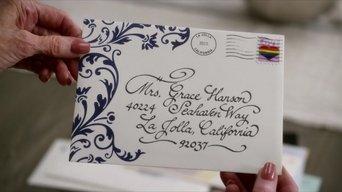 LA JOLLA
2015
CALIFORNIA
Mrs. Grace Hanson
40224 Seahaven Way
La Jolla, California
92037